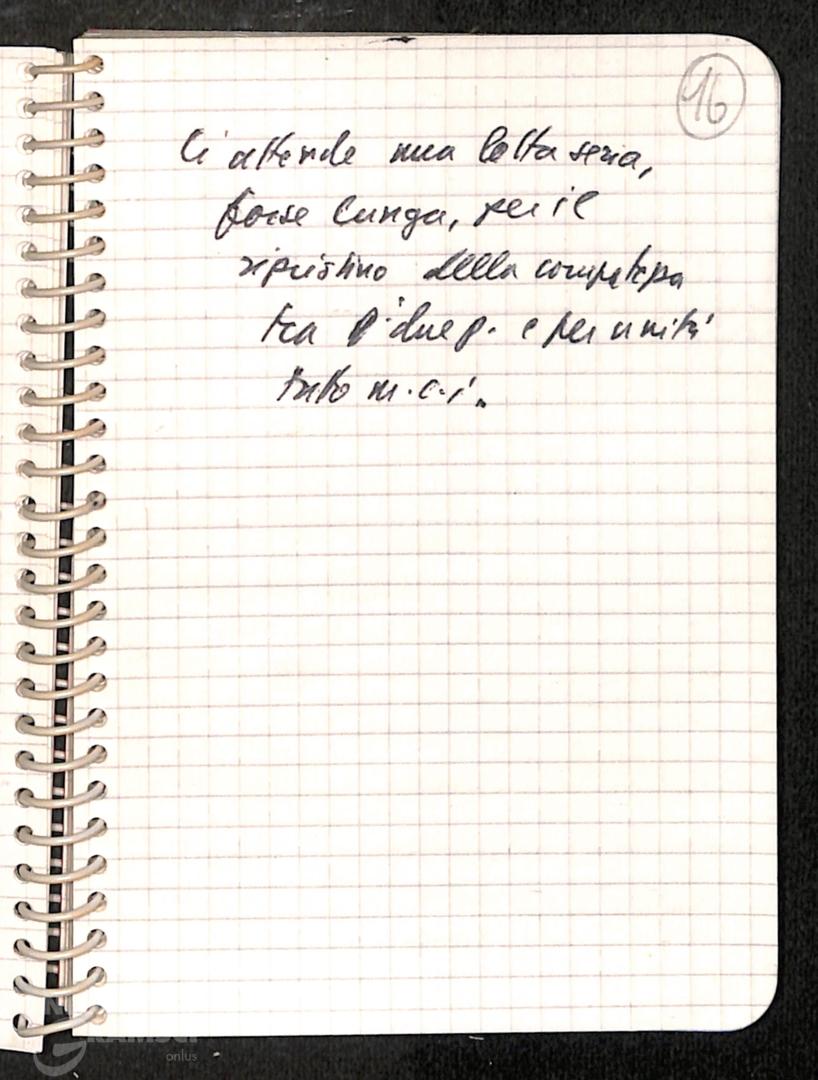 16
Ci attende una lotta seria,
forse lunga, per il
ripristino della compattezza
tra i due p. e per unità
tutto m.c.i.
GRAMSCI
onlus